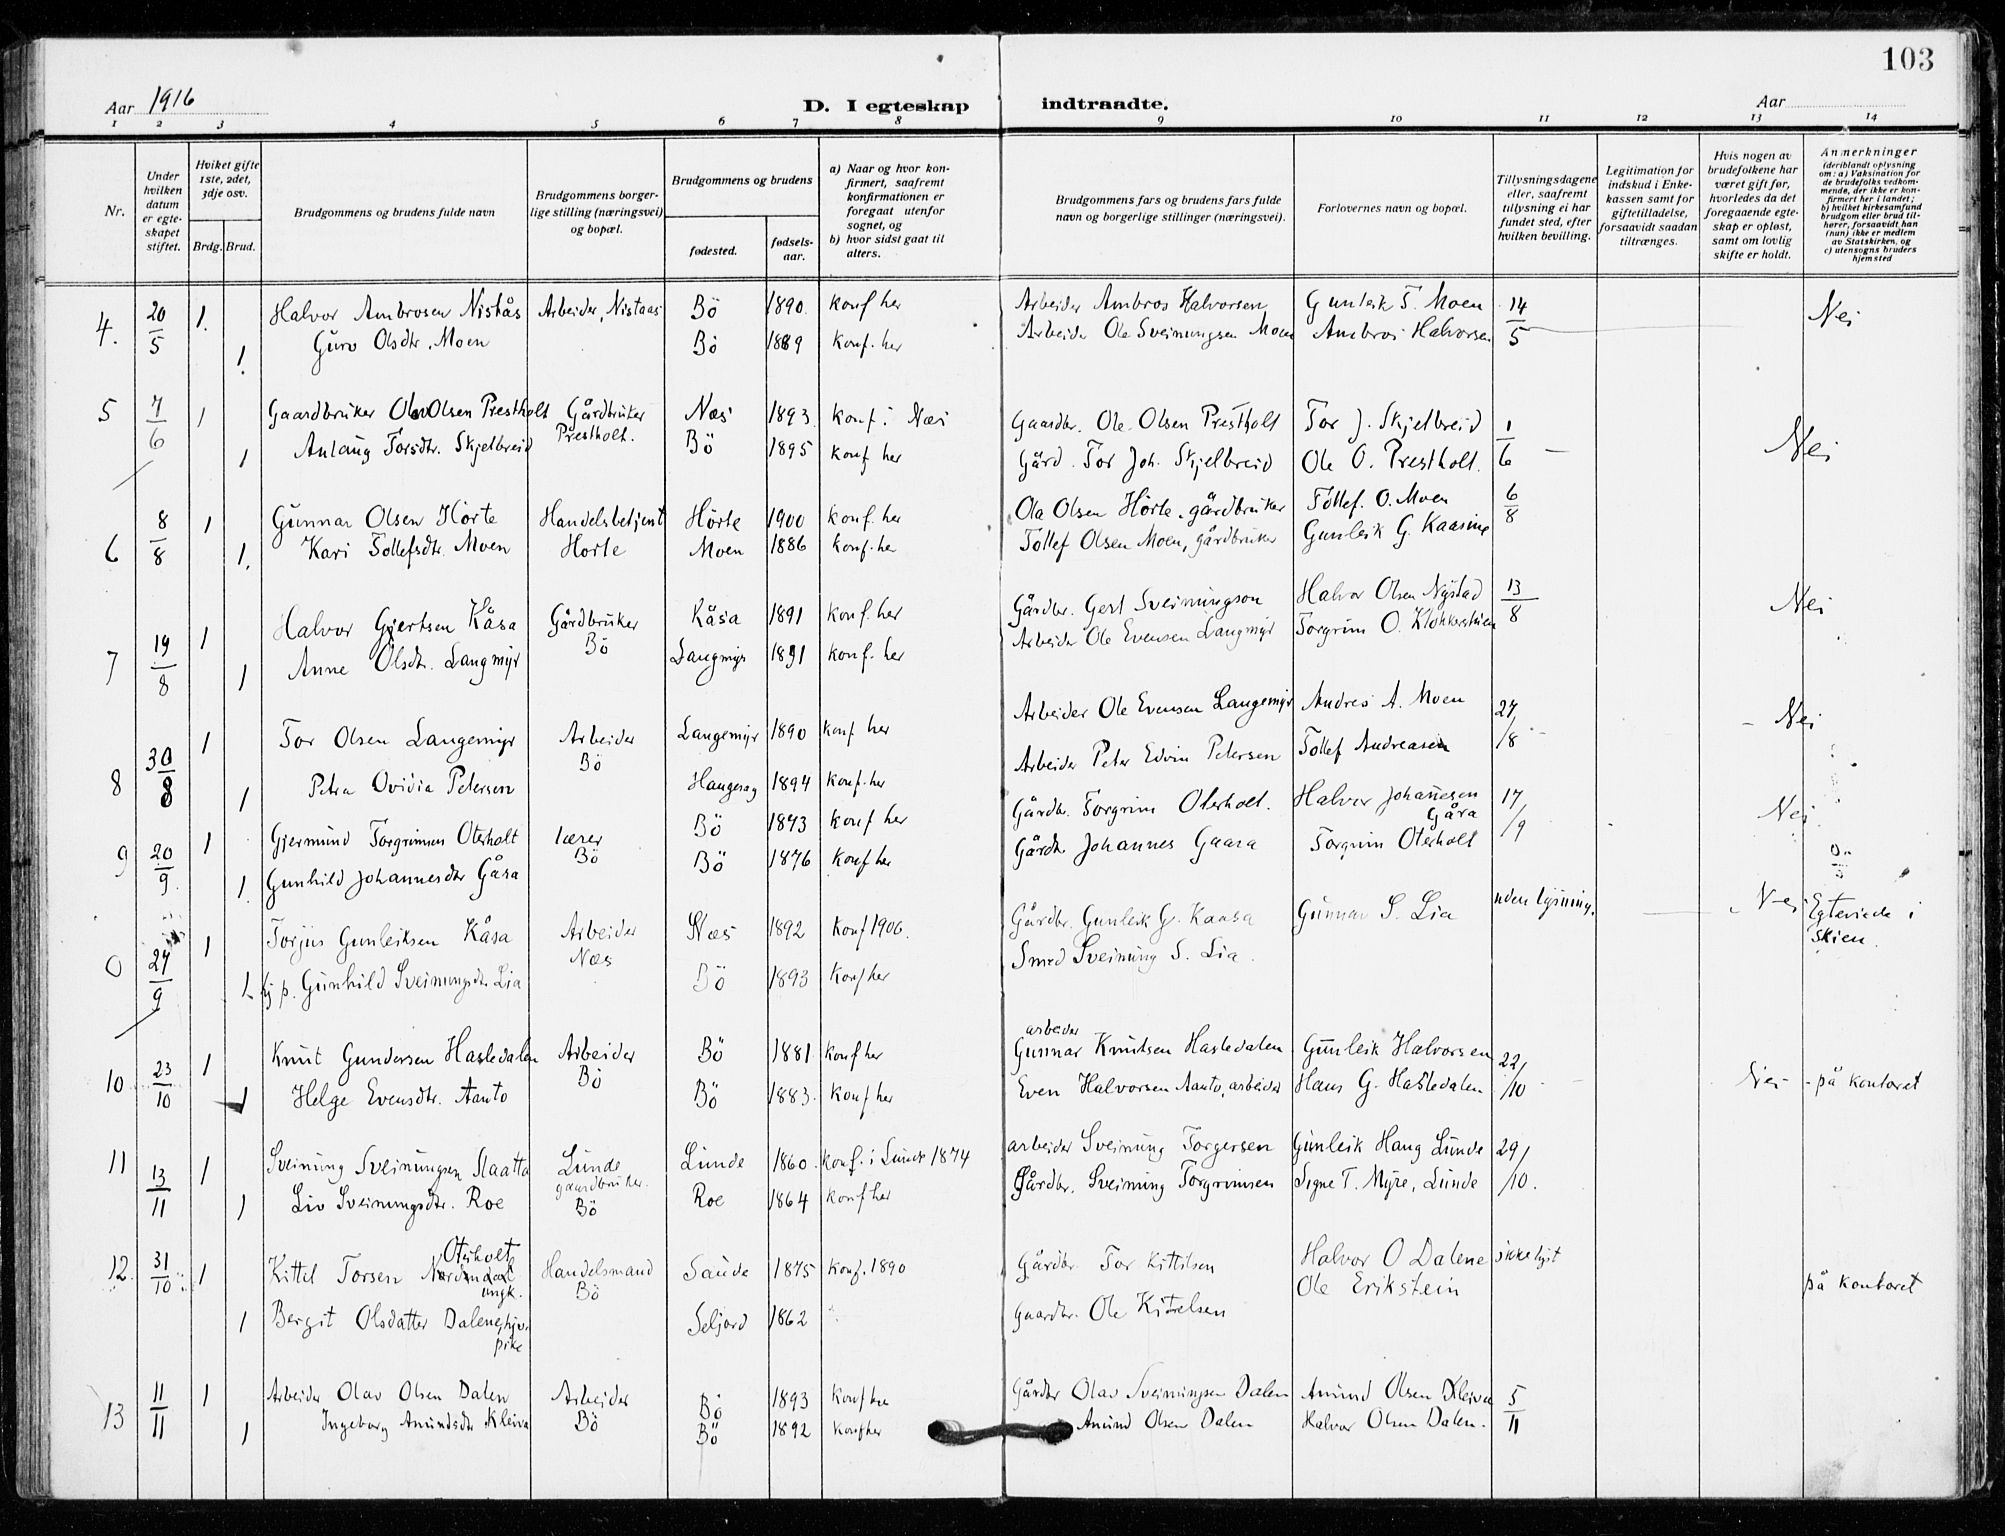 103
Aar 1916
D. I egteskap indtraadte.
Aar
1 2 3 4 5 6 7 8 9 10 11 12 13 14
Nr.
Under hvilken datum er egteskapet stiftet.
Hvilket gifte 1ste, 2det, 3dje osv.
Brdg. Brud.
Brudgommens og brudens fulde navn
Brudgommens borgerlige stilling (næringsvei) og bopæl.
Brudgommens og brudens
fødested.
fødselsaar.
a) Naar og hvor konfirmert, saafremt konfirmationen er foregaat utenfor sognet, og
b) hvor sidst gaat til alters.
Brudgommens fars og brudens fars fulde navn og borgerlige stillinger (næringsvei).
Forlovernes navn og bopæl.
Tillysningsdagene eller, saafremt tillysning ei har fundet sted, efter hvilken bevilling.
Legitimation for indskud i Enkekassen samt for giftetilladelse, forsaavidt saadan tiltrænges.
Hvis nogen av brudefolkene har været gift før, hvorledes da det foregaaende egteskap er opløst, samt om lovlig skifte er holdt.
Anmerkninger (deriblandt oplysning om: a) Vaksination for de brudefolks vedkommende, der ikke er konfirmert her i landet; b) hvilket kirkesamfund brudgom eller brud tilhører, forsaavidt han (hun) ikke er medlem av Statskirken, og c) utensogns bruders hjemsted
4. 20/5 1. Halvor Ambrosen Nistås Arbeider, Nistaas Bö 1890. konf her Arbeider Ambros Halvorsen Gunleik T. Moen 14/5 Nei
1. Guro Olsdtr. Moen Bö 1889 konf. her Arbeider Ole Sveinungsen Moen Ambros Halvorsen
5 7/6 1 Gaardbruker Olav Olsen Prestholt Gårdbruker Prestholt. Næs 1893. konf. i Næs Gaardbr. Ole Olsen Prestholt Tor J. Skjelbreid 1/6 Nei
1 Anlaug Torsdtr. Skjelbreid Bö 1895 konf her Gård. Tor Joh. Skjelbreid Ole O. Prestholt.
6 8/8 1 Gunnar Olsen Hörte Handelsbetjent Hörte 1900 konf. her Ola Olsen Hörte. gårdbruker Tollef. O. Moen 6/8
1. Kari Tollefsdtr. Moen Horte Moen 1886 konf. her Tollef Olsen Moen, gårdbruker Gunleik G. Kaasine
7 19/8 1 Halvor Gjertsen Kåsa Gårdbruker Bö Kåsa 1891 konf. her Gårdbr. Gert Sveinungson Halvor Olsen Nystad 13/8 Nei
1 Anne Olsdtr. Langmyr Langmyr 1891 konf. her Arbeider Ole Evensen Langmyr Torgrim O. Klokkerstuen
8 30/8 1 Tor Olsen Langemyr Arbeider Bö Langemyr 1890 konf her Arbeider Ole Evensen Langemyr Andres A. Moen 27/8 Nei
1 Petra Ovidia Petersen 1894 konf. her Arbeider Peter Edvin Petersen Tollef Andreasen
9 20/9. 1 Gjermund Torgrimsen Oterholt lærer Bö Bö 1873 konf her Gårdbr. Torgrim Oterholt. Halvor Johannesen Gåra 17/9 Nei
1. Gunhild Johannesdtr Gåra Bö 1876 konf her Gårdbr. Johannes Gaara Torgrim Oterholt
0 27/9 1 Torjus Gunleiksen Kåsa Arbeider Næs Næs 1892 konf 1906. Gårdbr. Gunleik G. Kaasa Gunnar S. Lia uden lysning. Nei Egteviede i Skien.
1 p. Gunhild Sveinungsdtr Lia Bö 1893 konf her Smed Sveinung S. Lia.
10 23/10 1 Knut Gundersen Hasledalen Arbeider Bö Bö 1881 konf her arbeider Gunnar Knutsen Hasledalen Gunleik Halvorsen 22/10 Nei på kontoret
1 Helge Evensdtr. Aanto Bö 1883. konf her Even Halvorsen Aanto, arbeider Hans G. Hasledalen
11 13/11 1 Sveinung Sveinungsen Slaatta Lunde gaardbruker. Lunde 1860. konf. i Lunde 1874 arbeider Sveinung Torgersen Gunleik Haug Lunde 29/10.
1 Liv Sveinungsdtr. Roe Bö Roe 1864 konf her Gårdbr. Sveinung Torgrimsen Signe T. Myre, Lunde
12. 31/10 1 Kittel Torsen Oterholt ungk. Handelsmand Bö Saude 1875 konf. 1890 Gårdbr. Tor Kittilsen Halvor O Dalene ikke lyst på kontoret
1 Bergit Olsdatter Dalene pike Seljord 1862 Gaardbr. Ole Kittelsen Ole Erikstein
13 11/11 1 Arbeider Olav Olsen Dalen Arbeider Bö Bö 1893 konf her Gårdbr Olav Sveinungsen Dalen Amund Olsen Kleiva 5/11
1 Ingeborg Amundsdtr Kleiva Bö 1892 konf her Amund Olsen Dalen Halvor Olsen Dalen.